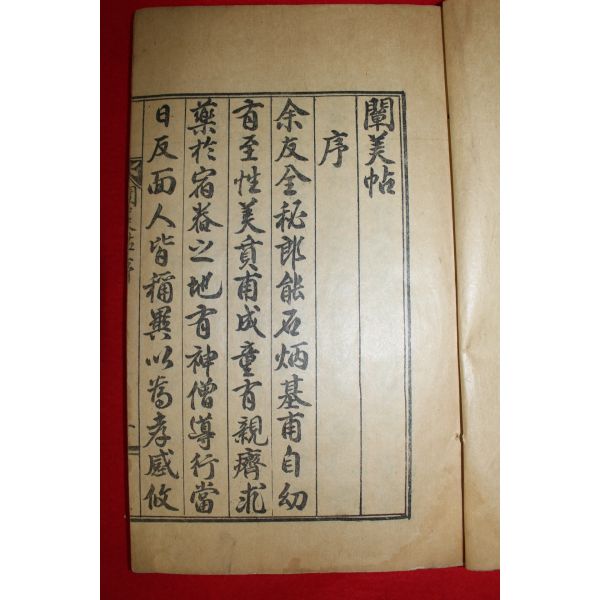 闡美帖
序
余友全秘郎能石炳基甫自幼
有至性美質甫成童有親癠求
藥於宿舂之地有神僧導行當
日反面人皆稱異以為孝感攸